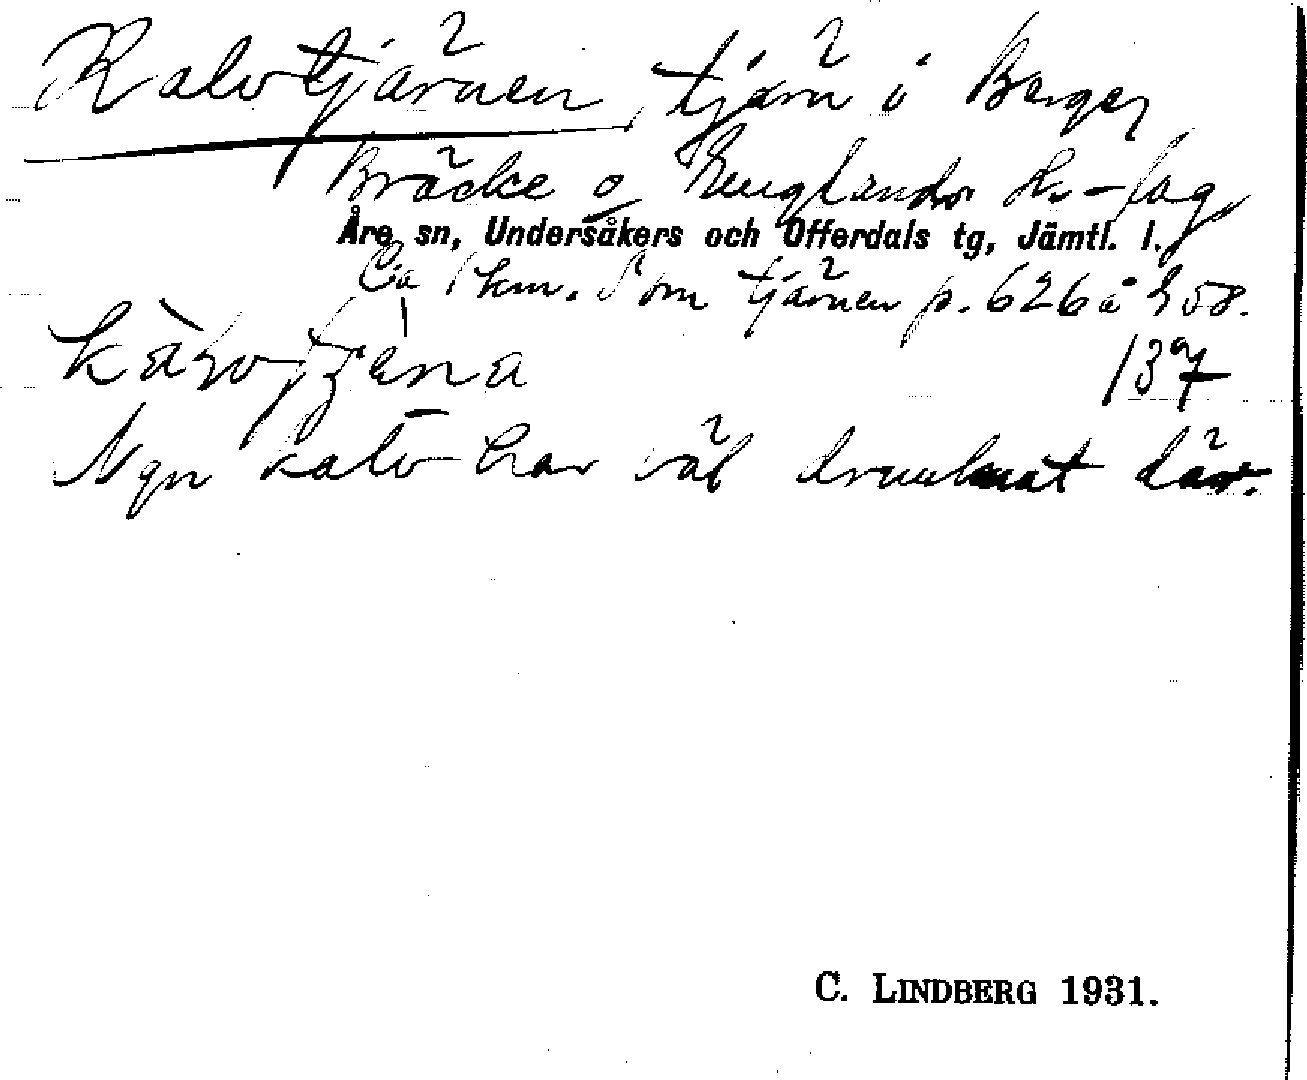 Kalvtjärnen, tjärn i Berger,
Bräcke o Englandsr Hs-lag,
Åre sn, Undersåkers och Offerdals tg, Jämtl. l.
Ca 1 km. S om tjärnen p. 626 å h 58.
137
Ngn kalv har väl drunknat där.
C. LINDBERG 1931.